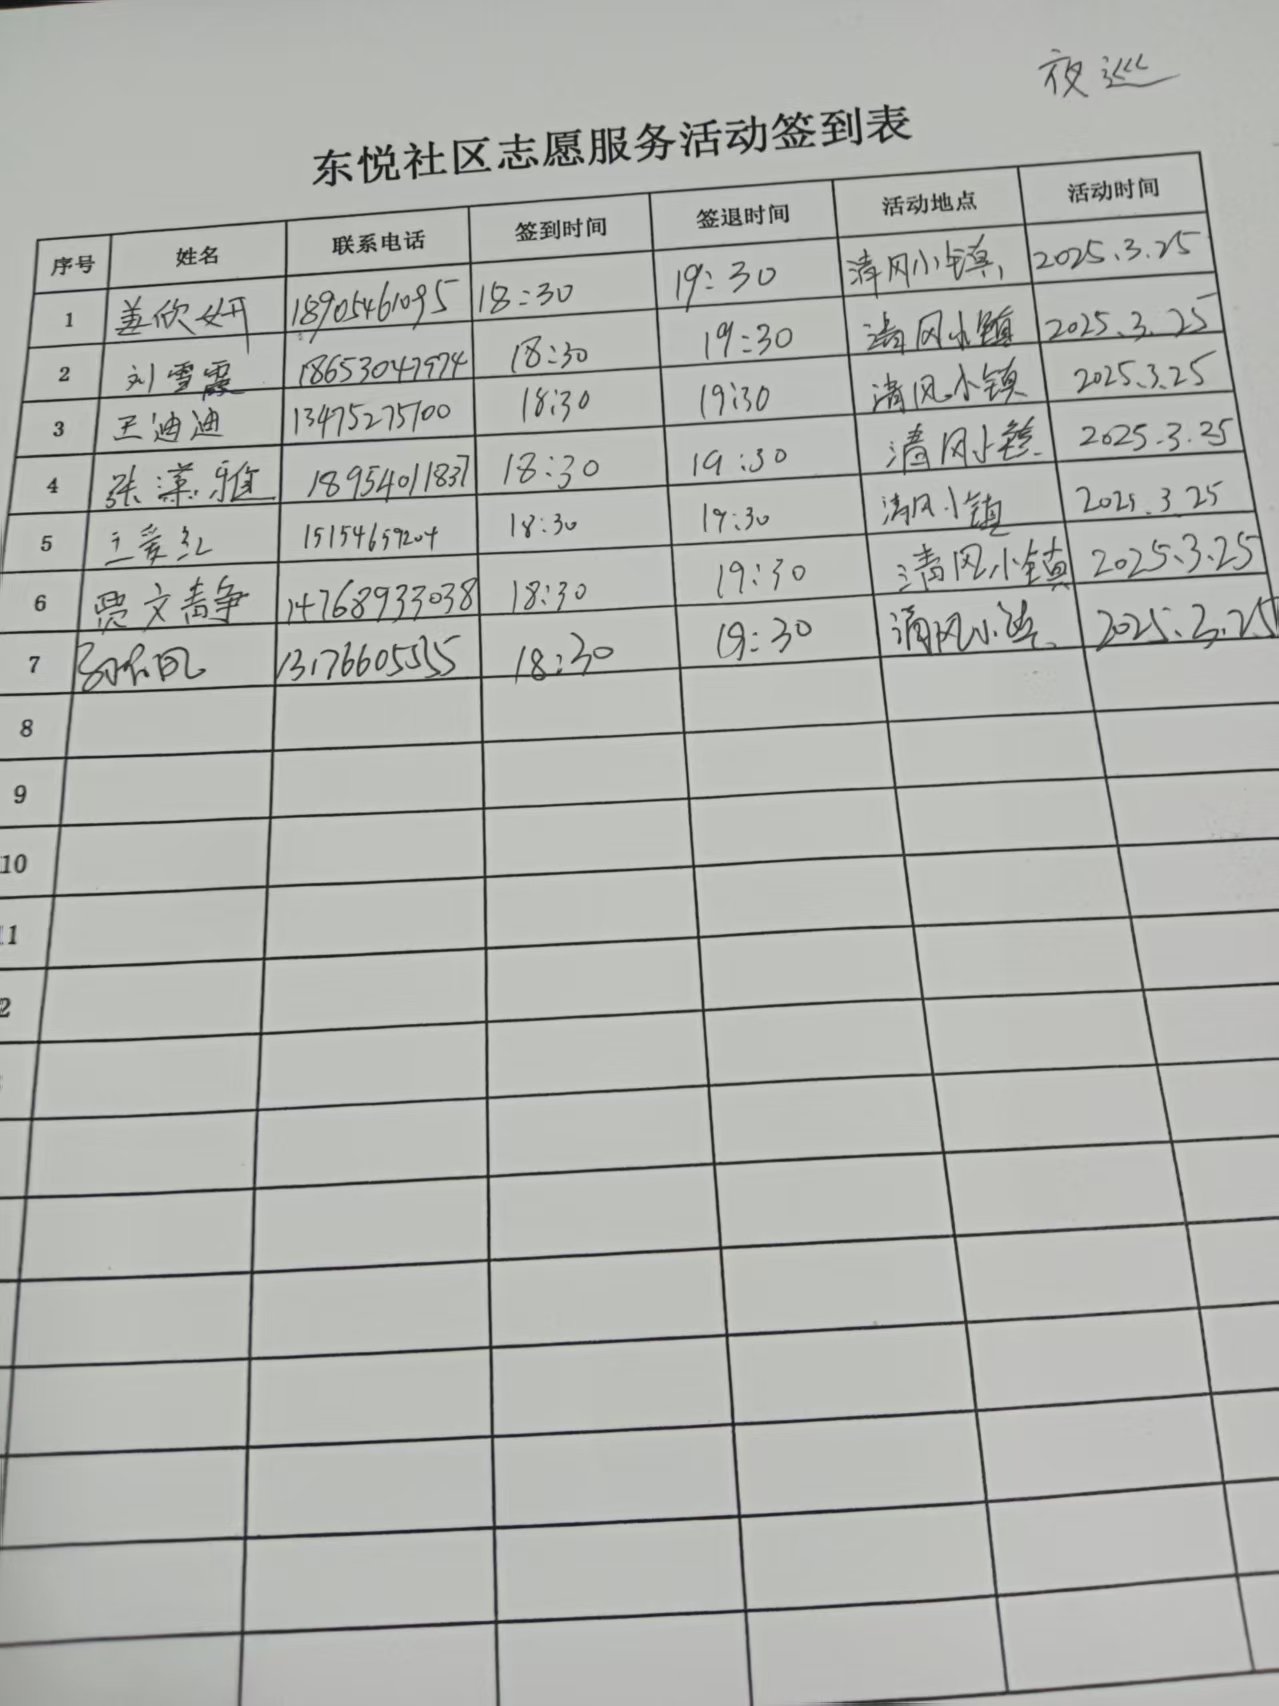 夜巡
东悦社区志愿服务活动签到表
序号 姓名 联系电话 签到时间 签退时间 活动地点 活动时间
1 姜欣妍 18905461095 18:30 19:30 清风小镇 2025.3.25
2 刘雪霞 18653047974 18:30 19:30 清风小镇 2025.3.25
3 王迪迪 13475275700 18:30 19:30 清风小镇 2025.3.25
4 张潇雅 18954011837 18:30 19:30 清风小镇 2025.3.25
5 王爱红 15154659204 18:30 19:30 清风小镇 2025.3.25
6 贾文静 14768933038 18:30 19:30 清风小镇 2025.3.25
7 18:30 19:30 清风小镇 2025.3.25
8
9
10
11
2